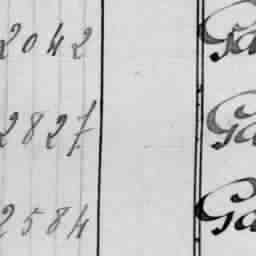 2042 Ga
2827 Ga
2584 Ga